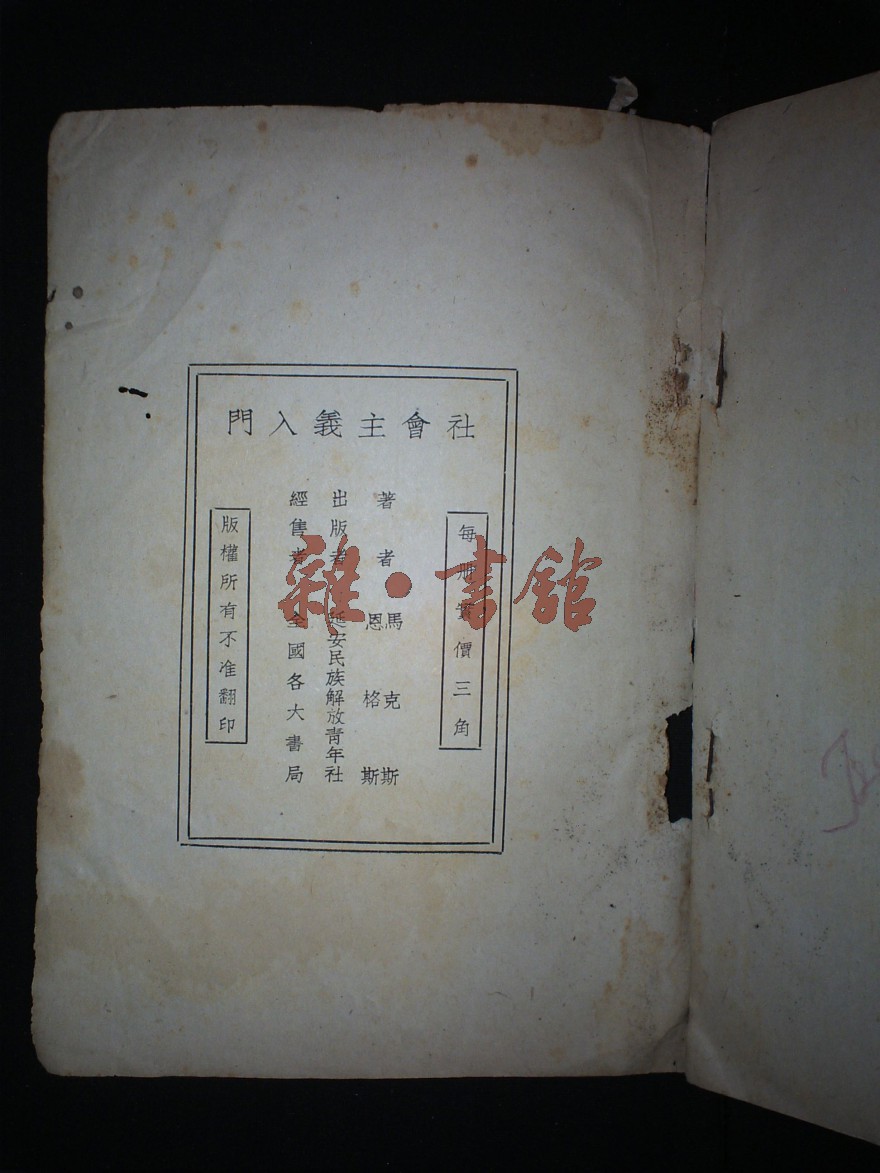 社會主義入門
每册實價三角
著者 馬克斯
恩格斯
出版者 延安民族解放青年社
經售者 全國各大書局
版權所有不准翻印
雜·書館